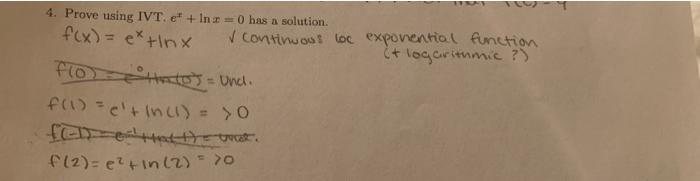 4. Prove using IVT. e^x + ln x = 0 has a solution.
f(x) = e^x + ln x √ continuous bc exponential function
(+ logarithmic ?)
f(0) = e^0 + ln(0) = Und.
f(1) = e^1 + ln(1) = >0
f(-1) = e^-1 + ln(-1) = und.
f(2) = e^2 + ln(2) = >0